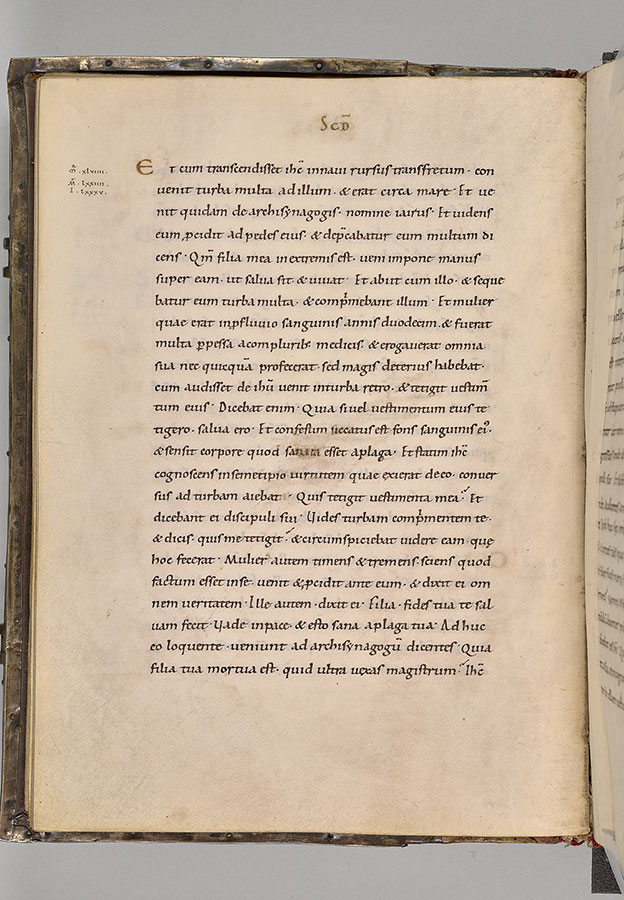 SCD̄
m̄ · xlviiii ·
M̄ · lxxiiii ·
l · lxxxv ·
Et cum transcendisset ihc̄ innaui rursus transfretum · con
uenit turba multa adillum · & erat circa mare · Et ue
nit quidam dearchisynagogis · nomine iairus · Et uidens
eum p̄cidit adpedes eius · & dep̄cabatur eum multum di
cens · Qm̄ filia mea inextremis est · ueni impone manus
super eam · ut salua sit & uiuat · Et abiit cum illo · & seque
batur eum turba multa · & comp̄mebant illum · Et mulier
quae erat inpfluuio sanguinis annis duodecim · & fuerat
multa ꝑpessa acompluribꝫ medicis & erogauerat omnia
sua nec quicquā profecerat · sed magis deterius habebat ·
cum audisset de ihū uenit inturba retro · & tetigit uestim̄
tum eius · Dicebat enim · Quia si uel uestimentum eius te
tigero · salua ero · Et confestim siccatus est fons sanguinis ei᾽ ·
& sensit corpore quod sanata esset aplaga · Et statim ihc̄
cognoscens insemetipso uirtutem quae exierat deeo · conuer
sus ad turbam aiebat · Quis tetigit uestimenta mea? Et
dicebant ei discipuli sui · Uides turbam comp̄mentem te ·
& dicis · quis me tetigit? & circumspiciebat uidere eam quę
hoc fecerat · Mulier autem timens & tremens · sciens quod
factum esset inse · uenit & p̄cidit ante eum · & dixit ei om
nem ueritatem · Ille autem · dixit ei · Filia · fides tua te sal
uam fecit · Uade inpace · & esto sana aplaga tua · Adhuc
eo loquente · ueniunt ad archisynagogū dicentes · Quia
filia tua mortua est · quid ultra uexas magistrum? Ihc̄